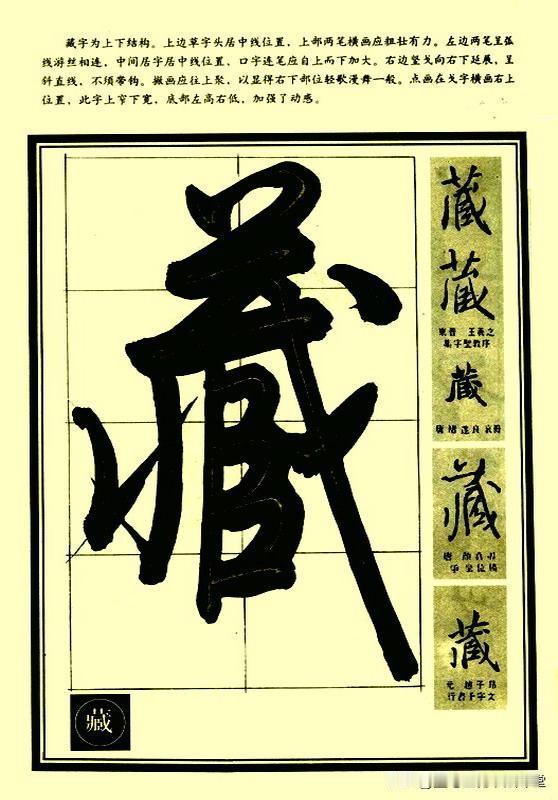 藏字为上下结构。上边草字头居中线位置，上部两笔横画应粗壮有力。左边两笔呈弧
线游丝相连，中间居字居中线位置、口字连笔应自上而下加大。右边竖戈向右下延展，呈
斜直线，不须带钩。撇画应往上聚，以显得右下部位轻歌漫舞一般。点画在戈字横画右上
位置，此字上窄下宽，底部左高右低，加强了动感。
藏
藏
藏
東晋 王羲之
集字聖教序
藏
唐 褚遂良 哀册
藏
唐 顔真卿
争坐位稿
藏
元 趙子昂
行書千字文
藏